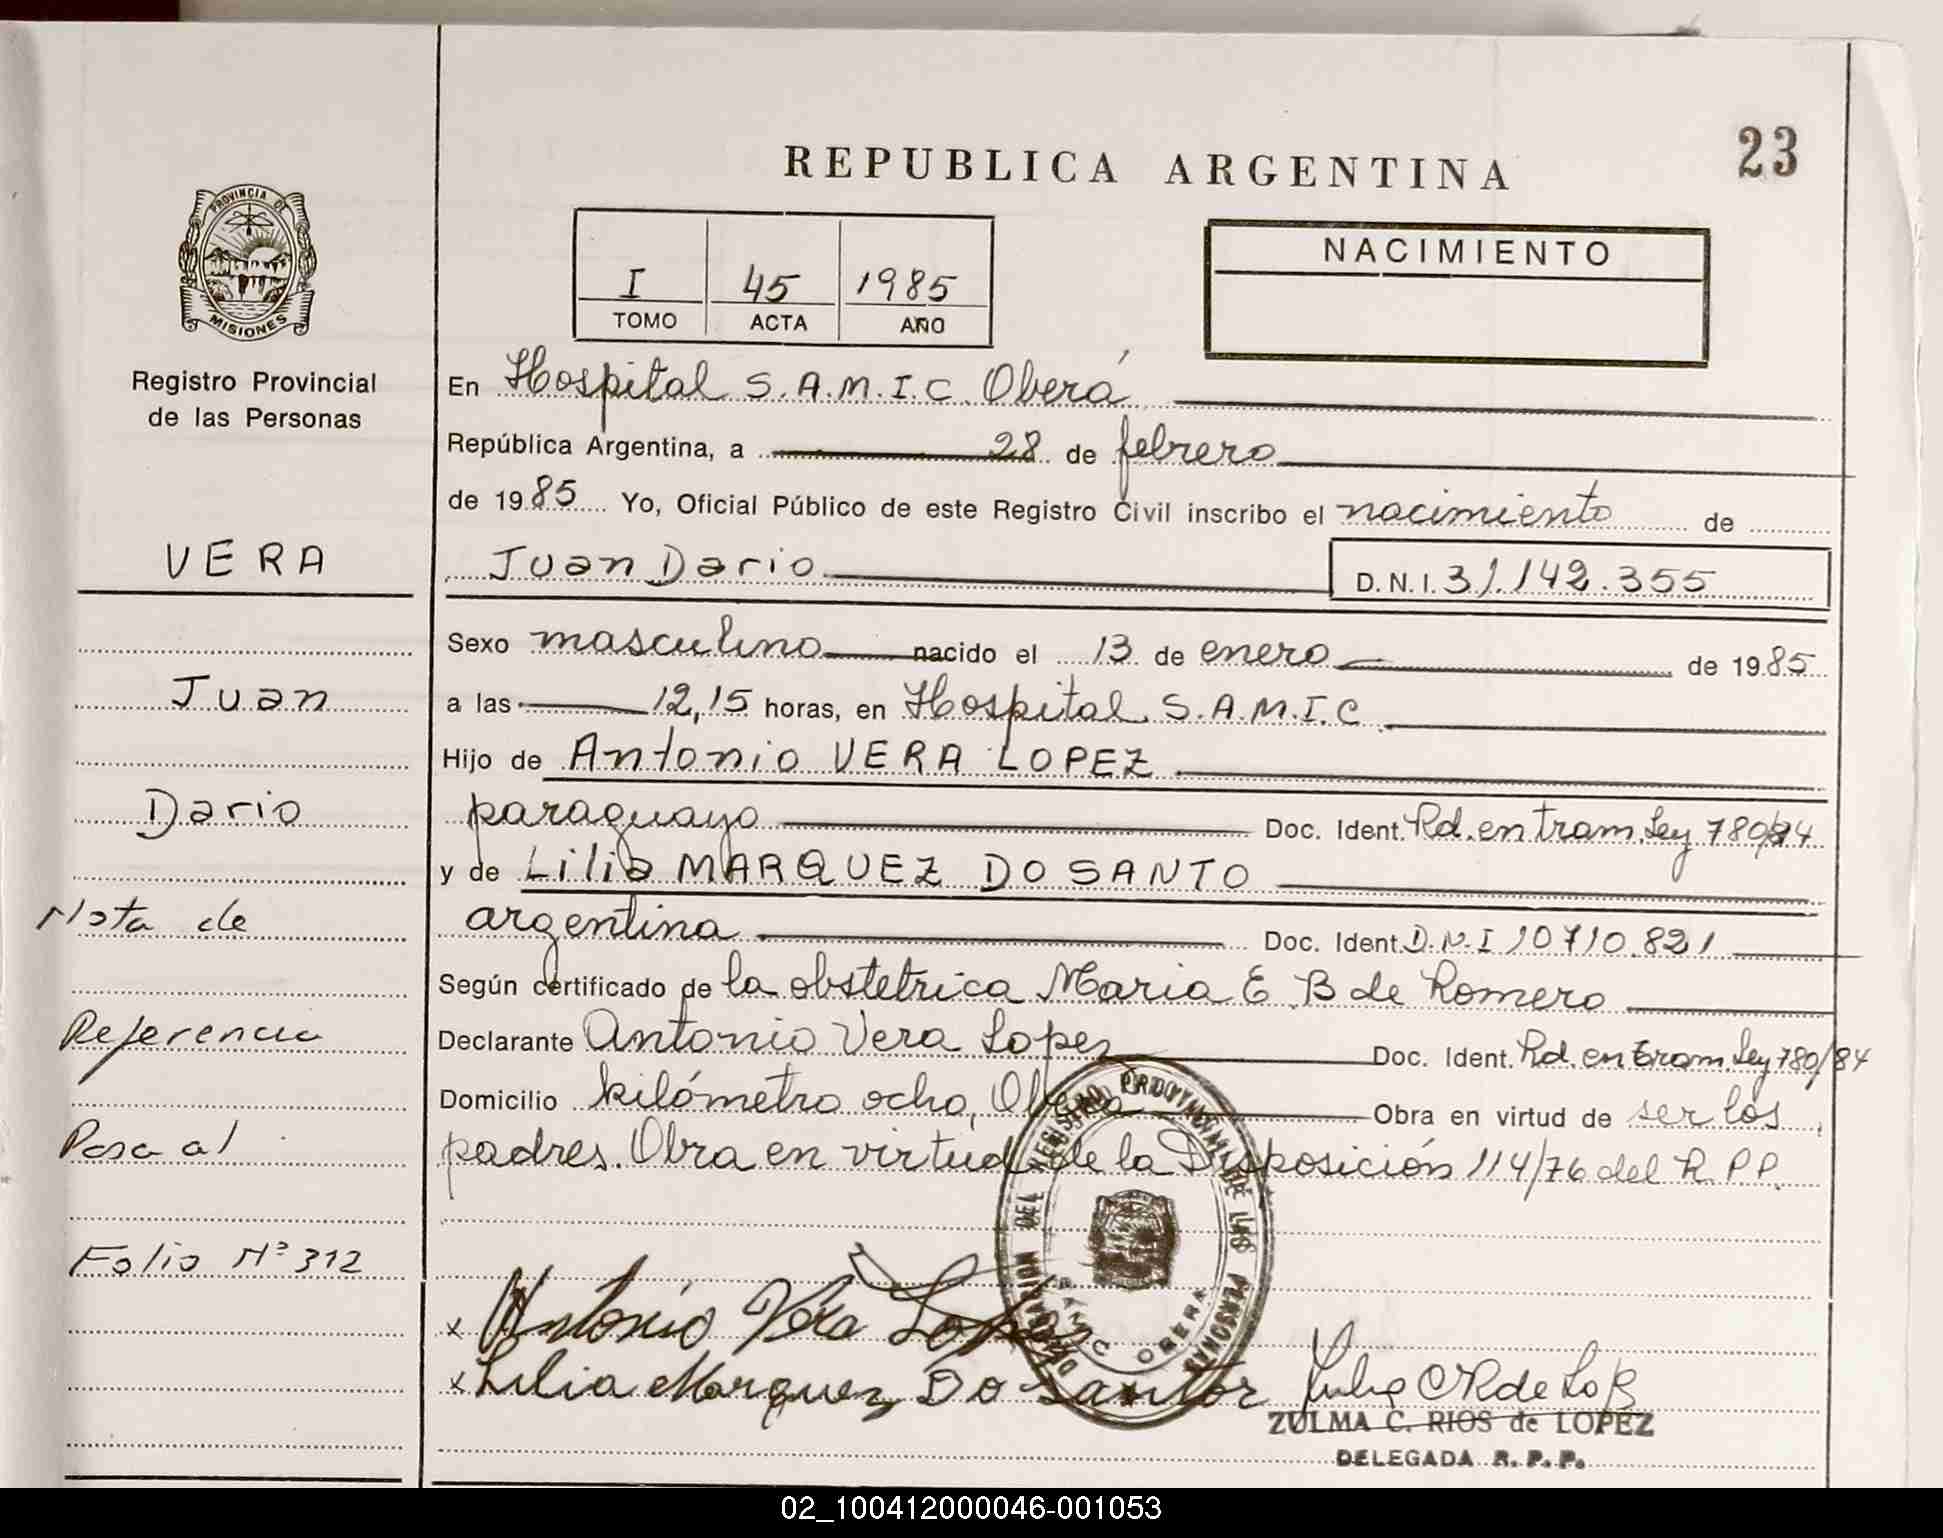 23
REPUBLICA ARGENTINA
PROVINCIA DE
MISIONES
Registro Provincial
de las Personas
I 45 1985
TOMO ACTA AÑO
NACIMIENTO
VERA
Juan
Dario
Nota de
Referencia
Pasa al
Folio Nº 312
En Hospital S.A.M.I.C. Oberá
República Argentina, a 28 de febrero
de 1985 Yo, Oficial Público de este Registro Civil inscribo el nacimiento de
Juan Dario D.N.I. 31.142.355
Sexo masculino nacido el 13 de enero de 1985
a las 12,15 horas, en Hospital S.A.M.I.C
Hijo de Antonio VERA LOPEZ
paraguayo Doc. Ident. Rd. en tram. Ley 780/84
y de Lilia MARQUEZ DO SANTO
argentina Doc. Ident. D.N.I 10710.821
Según certificado de la obstetrica Maria E. B de Romero
Declarante Antonio Vera Lopez Doc. Ident. Rd. en tram. Ley 780/84
Domicilio kilómetro ocho, Oberá Obra en virtud de ser los
padres. Obra en virtud de la Disposición 114/76 del R.P.P.
x Antonio Vera Lopez
x Lilia Marquez Do Santos
DELEGACION DEL REGISTRO PROVINCIAL DE LAS PERSONAS
OBERA
ZULMA C. RIOS de LOPEZ
DELEGADA R. P. P.
02_100412000046-001053